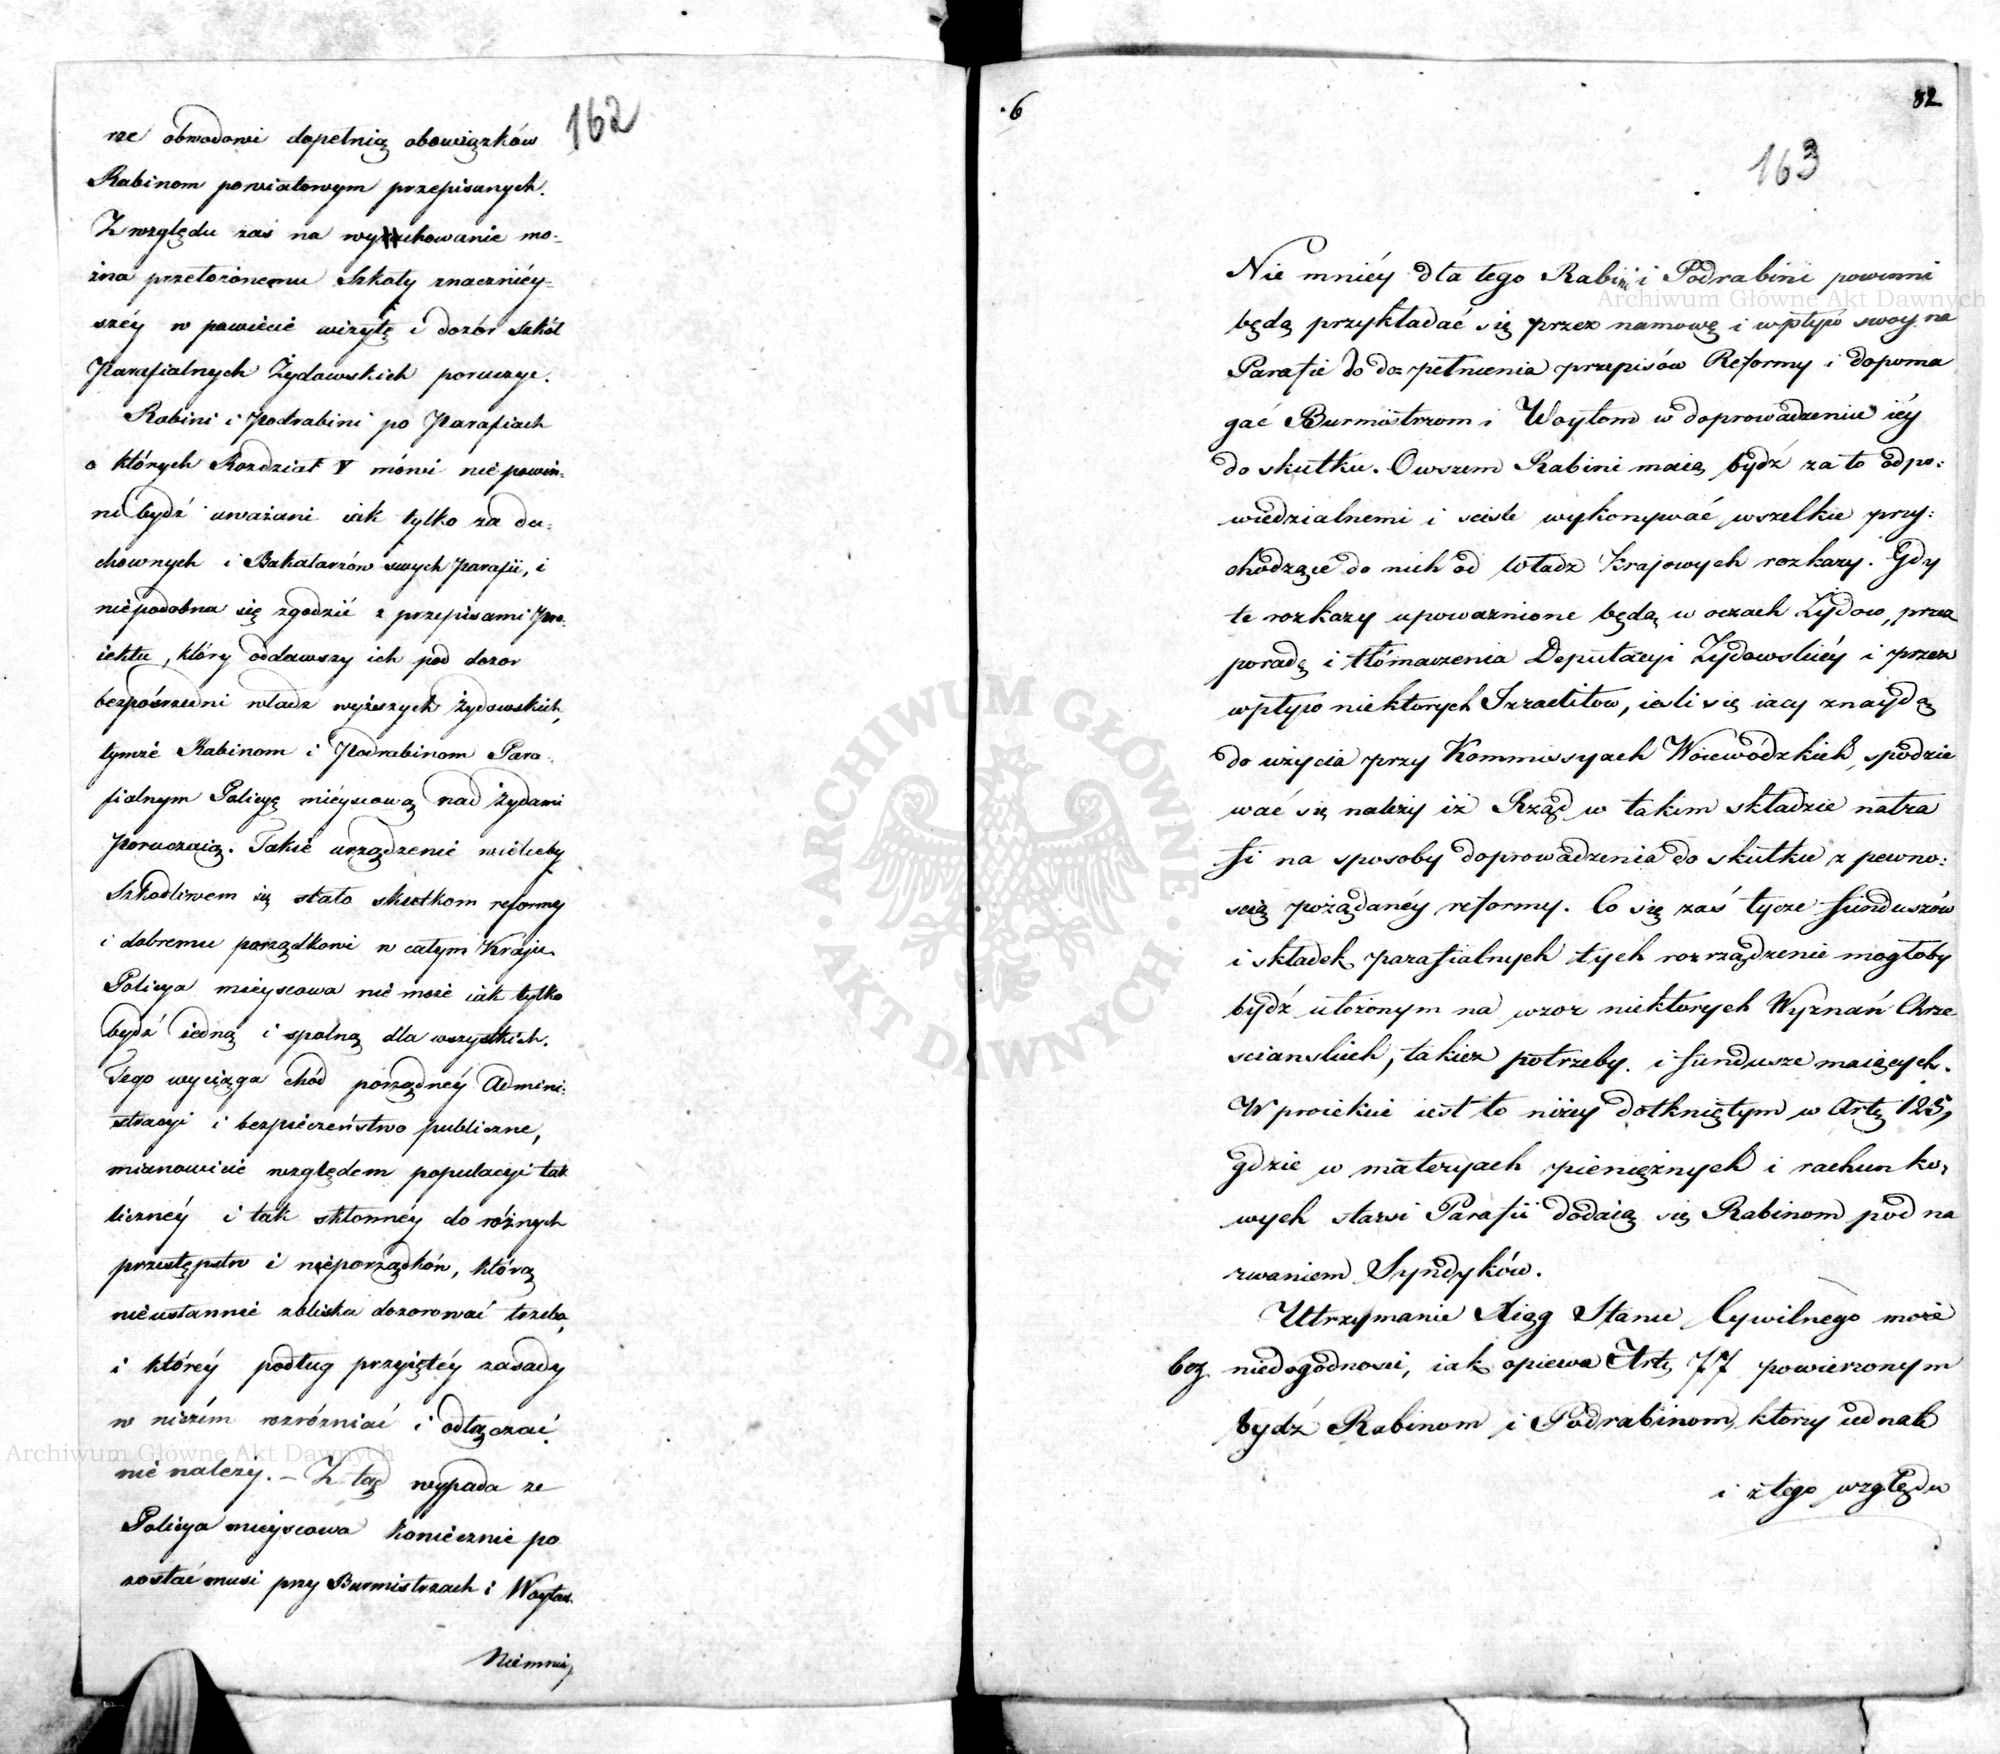 162
rze obwodowi dopełnią obowiązków
Rabinom powiatowym przepisanych.
Z względu zaś na wychowanie mo-
żna przełożonemu Szkoły znacznićy-
széy w powiecie wizytę i dozór szkół
Parafialnych Żydowskich poruczyć.
Rabini i Podrabini po Parafiach
o których Rozdział V mówi nie powin-
ni bydź uważani iak tylko za du-
chownych i Bakałarzów swych Parafii, i
niepodobna się zgodzić z przepisami Pro-
iektu, który oddawszy ich pod dozor
bezpośredni władz wyższych Żydowskich,
tymże Rabinom i Podrabinom Para-
fialnym Policyę mieyscową nad Żydami
poruczaią. Takie urządzenie wieleby
Szkodliwem się stało skutkom reformy
i dobremu porządkowi w całym Kraju.
Policya mieyscowa nie może iak tylko
bydź iedną i spolną dla wszystkich.
Tego wyciąga chód porządnéy Admini-
stracyi i bezpieczeństwo publiczne,
mianowicie względem populacyi tak
licznéy i tak skłonnéy do różnych
przestępstw i nieporządków, którą
nieustannie zbliska dozorować trzeba,
i któréy podług przyiętéy zasady
w niczém rozróżniać i odłączać
nie należy. – Z tąd wypada że
Policya mieyscowa koniecznie po
zostać musi przy Burmistrzach i Woytach.
Niemniéy
6
82
163
Nie mniéy dla tego Rabini i Podrabini powinni
będą przykładać się przez namowę i wpływ swoy na
Parafie do do-pełnienia przepisów Reformy i dopoma
gać Burmistrzom i Woytom w doprowadzeniu iéy
do skutku. Owszem Rabini maią bydź za to odpo-
wiedzialnemi i sciśle wykonywać wszelkie przy-
chodzące do nich od Władz Krajowych rozkazy. Gdy
te rozkazy upoważnione będą w oczach Żydow, przez
poradę i tłómaczenia Deputacyi Żydowskiéy i przez
wpływ niektorych Izraelitow, iesli się iacy znaydą
do użycia przy Kommissyach Woiewódzkich, spodzie
wać się należy iż Rząd w takim składzie natra
fi na sposoby doprowadzenia do skutku z pewno-
scią pożądanéy reformy. Co się zaś tycze funduszów
i składek parafialnych tych rozrządzenie mogłoby
bydź ułożonym na wzor niektorych Wyznań Chrze
scianskich, takież potrzeby i fundusze maiących.
W proiekcie iest to niżey dotkniętym w Artę 125,
gdzie w materyach pieniężnych i rachunko-
wych starsi Parafii dodaią się Rabinom pod na
zwaniem Syndyków.
Utrzymanie Xiąg Stanu Cywilnego może
bez niedogodnosci, iak opiewa Artę 77 powierzonym
bydź Rabinom i Podrabinom, ktorzy iednak
i z tego względu
Archiwum Główne Akt Dawnych
Archiwum Główne Akt Dawnych
ARCHIWUM GŁÓWNE AKT DAWNYCH